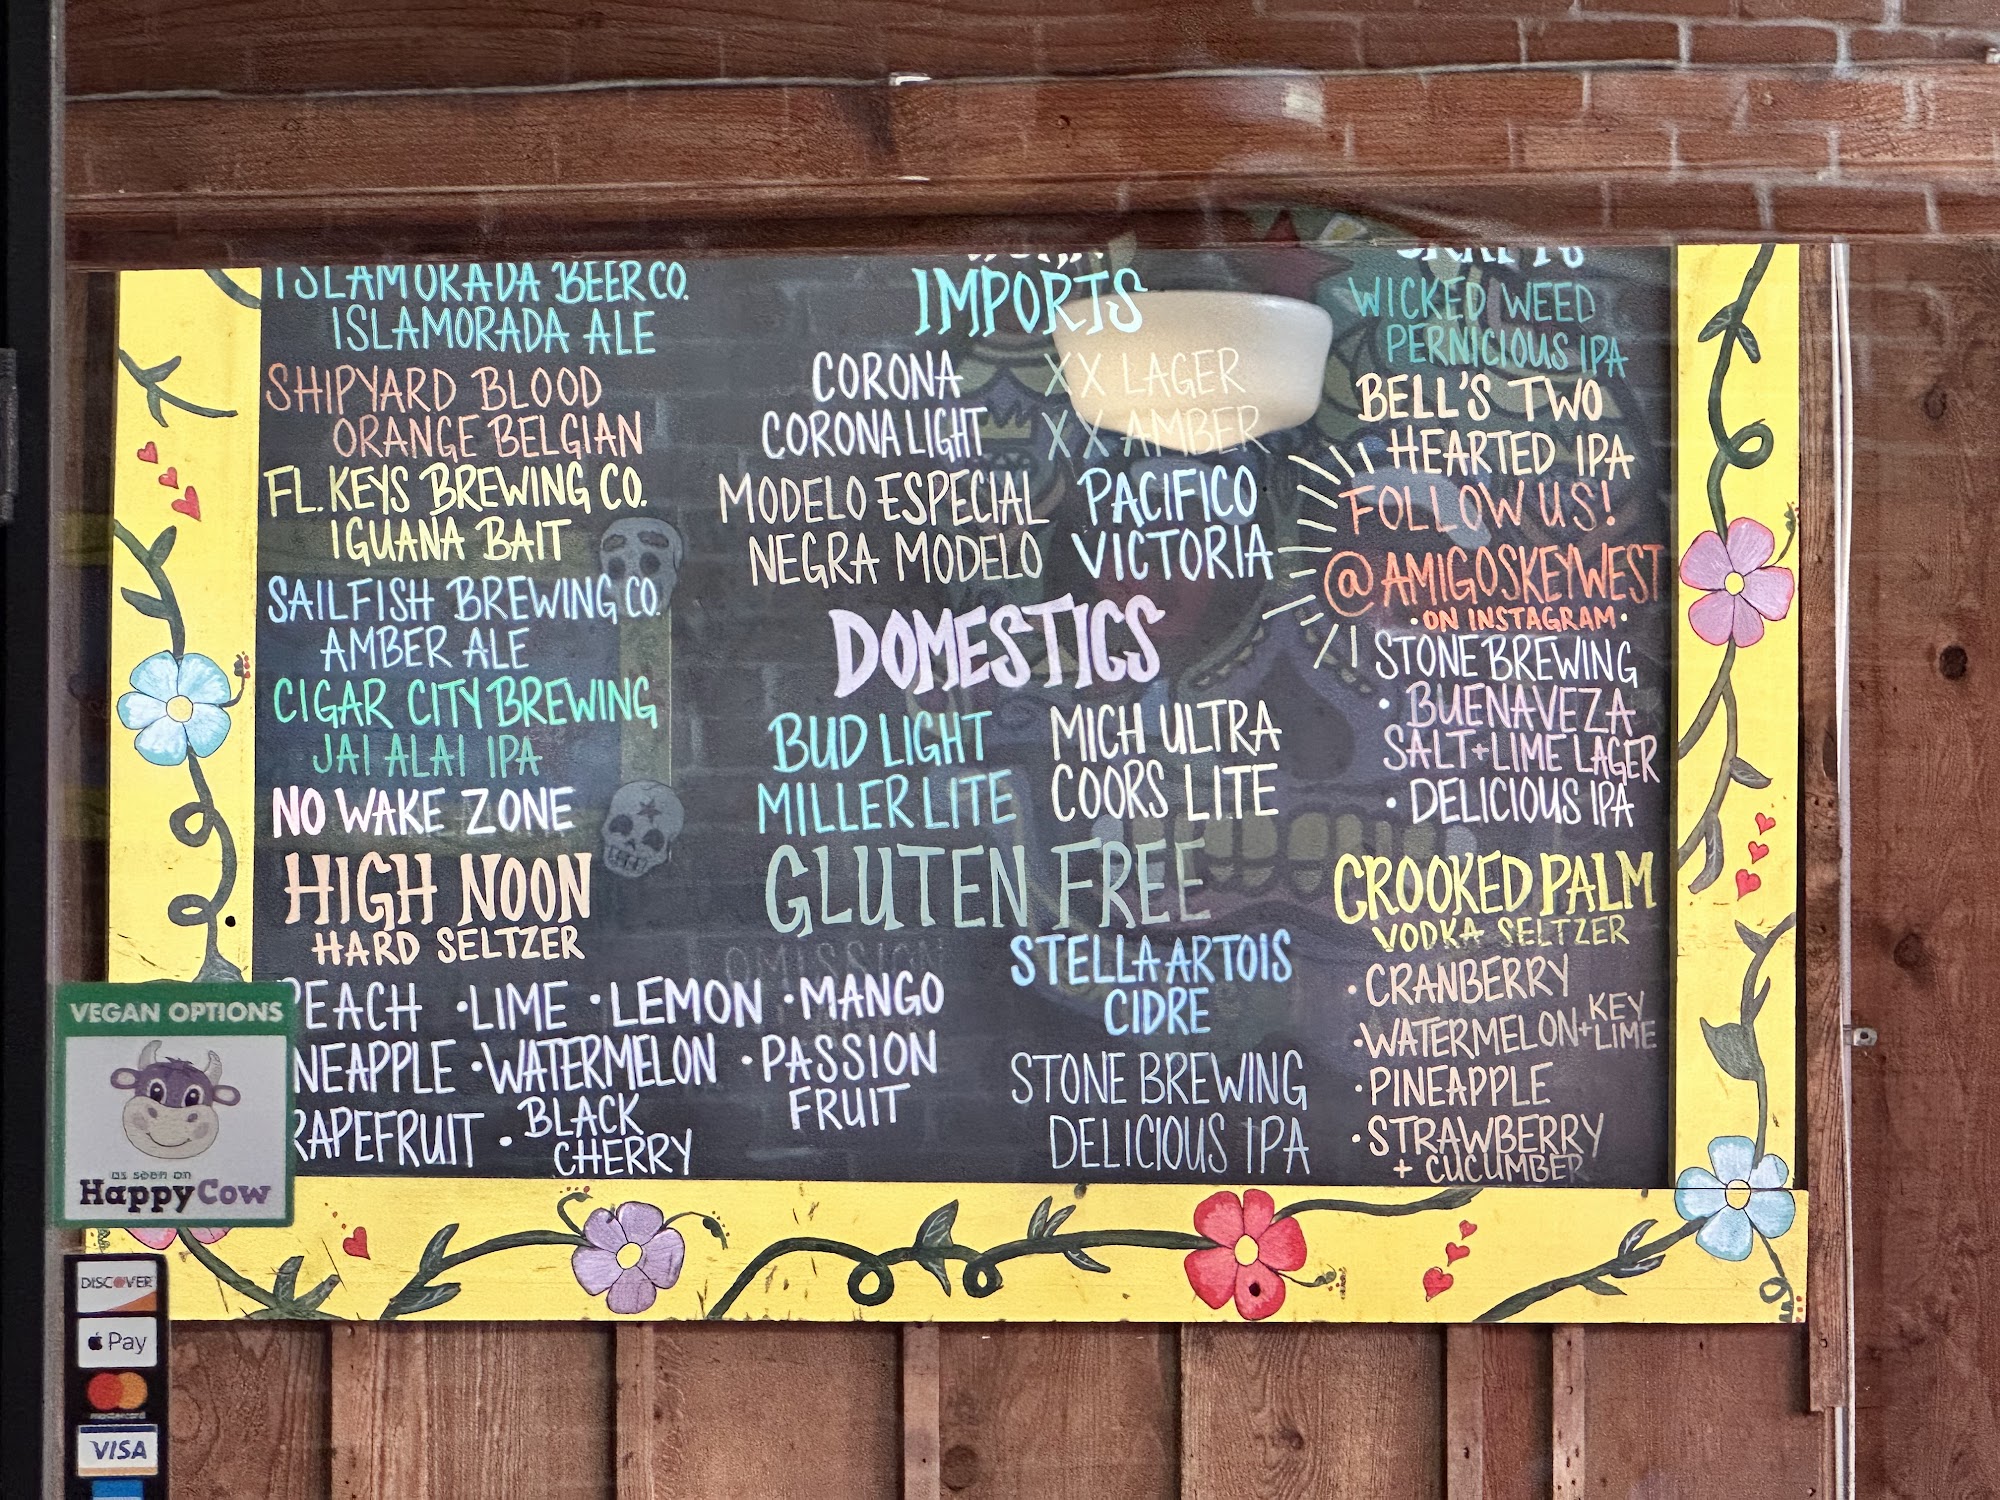 ISLAMORADA BEER CO.
ISLAMORADA ALE
SHIPYARD BLOOD
ORANGE BELGIAN
FL. KEYS BREWING CO.
IGUANA BAIT
SAILFISH BREWING CO.
AMBER ALE
CIGAR CITY BREWING
JAI ALAI IPA
NO WAKE ZONE
HIGH NOON
HARD SELTZER
PEACH • LIME • LEMON • MANGO
NEAPPLE • WATERMELON • PASSION
FRUIT
RAPEFRUIT • BLACK
CHERRY
IMPORTS
CORONA XX LAGER
CORONA LIGHT XX AMBER
MODELO ESPECIAL PACIFICO
NEGRA MODELO VICTORIA
DOMESTICS
BUD LIGHT MICH ULTRA
MILLER LITE COORS LITE
GLUTEN FREE
OMISSION
STELLA ARTOIS
CIDRE
STONE BREWING
DELICIOUS IPA
CRAFTS
WICKED WEED
PERNICIOUS IPA
BELL'S TWO
HEARTED IPA
FOLLOW US!
@AMIGOSKEYWEST
• ON INSTAGRAM •
STONE BREWING
• BUENAVEZA
SALT + LIME LAGER
• DELICIOUS IPA
CROOKED PALM
VODKA SELTZER
• CRANBERRY
• WATERMELON + KEY LIME
• PINEAPPLE
• STRAWBERRY
+ CUCUMBER
VEGAN OPTIONS
as seen on
HappyCow
DISCOVER
Pay
mastercard
VISA